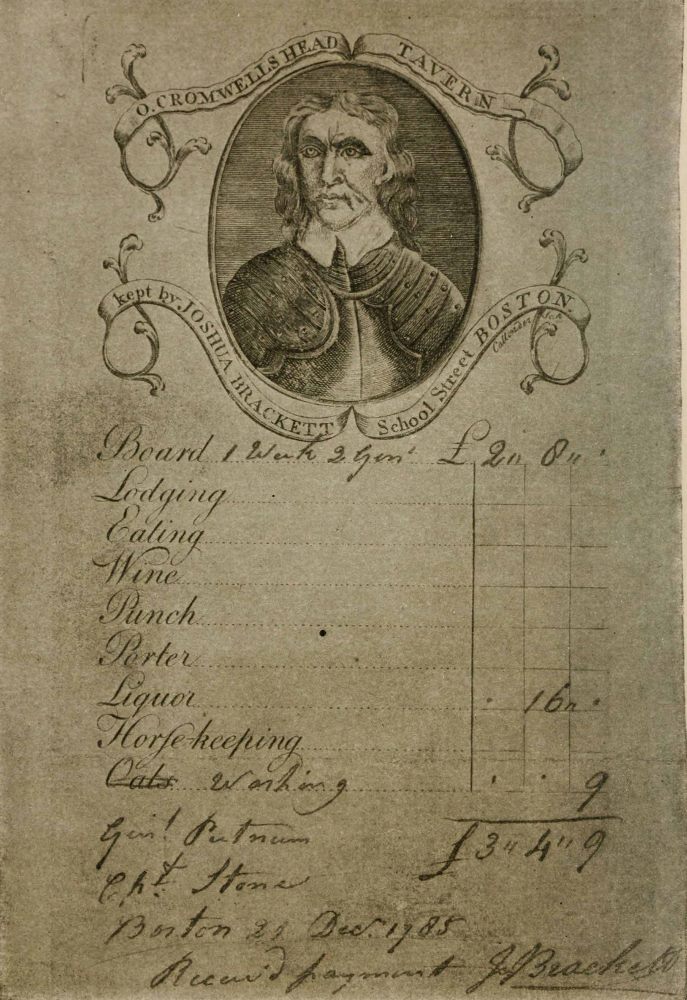 O. CROMWELLS HEAD TAVERN
kept by JOSHUA BRACKETT School Street BOSTON.
Board 1 Week 2 Gent £ 2 " 8 "
Lodging
Eating
Wine
Punch
Porter
Liquor 16 "
Horse-keeping
Oats Washing 9
Genl. Putnam £ 3 " 4 " 9
Cpt. Stone
Boston 29 Dec. 1785
Receiv'd payment J Brackett